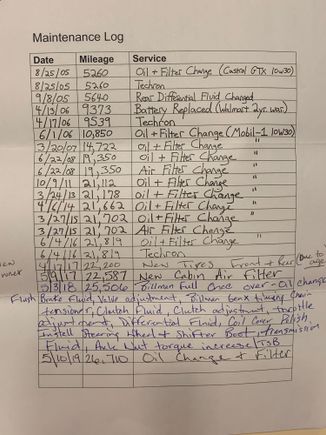 Maintenance Log
Date Mileage Service
8/25/05 5260 Oil + Filter Change (Castrol GTX 10w30)
8/25/05 5260 Techron
9/8/05 5640 Rear Differential Fluid Changed
4/13/06 9373 Battery Replaced (Walmart 2yr. war.)
4/17/06 9539 Techron
6/1/06 10,850 Oil + Filter Change (Mobil-1 10W30)
3/20/07 14,722 Oil + Filter Change "
6/22/08 19,350 Oil + Filter Change "
6/22/08 19,350 Air Filter Change
10/9/11 21,112 Oil + Filter Change "
3/24/13 21,178 Oil + Filter Change "
4/6/14 21,662 Oil + Filter Change "
3/27/15 21,702 Oil + Filter Change "
3/27/15 21,702 Air Filter Change
6/4/16 21,819 Oil + Filter Change "
6/4/16 21,819 Techron
4/17/17 22,200 New Tires Front + Rear (Due to age)
new owner 5/9/17 22,587 New Cabin Air Filter
5/3/18 25,506 Billman Full Once over - Oil change
Flush Brake Fluid, Valve adjustment, Billman Gen X timing Chain
tensioner, Clutch Fluid, Clutch adjustment, throttle
adjustment, Differential Fluid, Coil Cover Polish
Install Steering Wheel + Shifter Boot, transmission
Fluid, Axle Nut torque increase / TSB
5/10/19 26,710 Oil Change + Filter